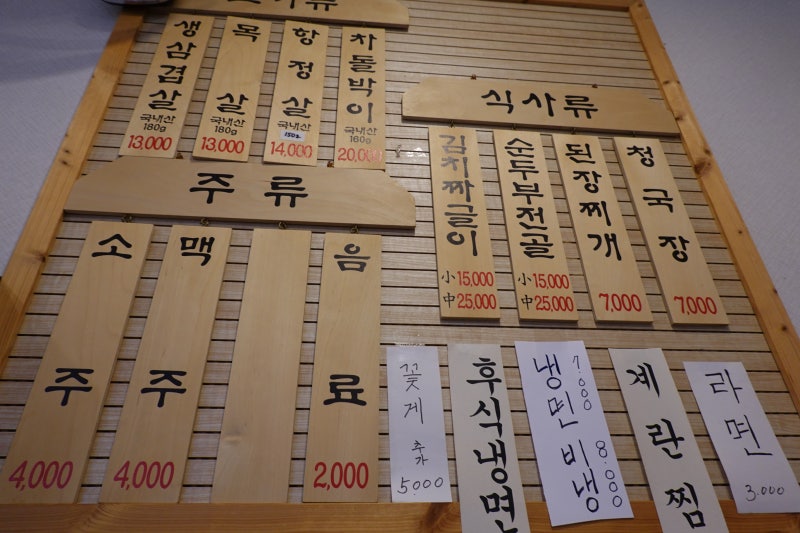 생삼겹살
국내산
180g
13,000
목살
국내산
180g
13,000
항정살
국내산
150g
14,000
차돌박이
국내산
160g
20,000
식사류
김치짜글이
小 15,000
中 25,000
순두부전골
小 15,000
中 25,000
된장찌개
7,000
청국장
7,000
주류
소주
4,000
맥주
4,000
음료
2,000
꽃게 추가
5.000
후식냉면
냉면 7.000
비냉 8.000
계란찜
라면
3.000